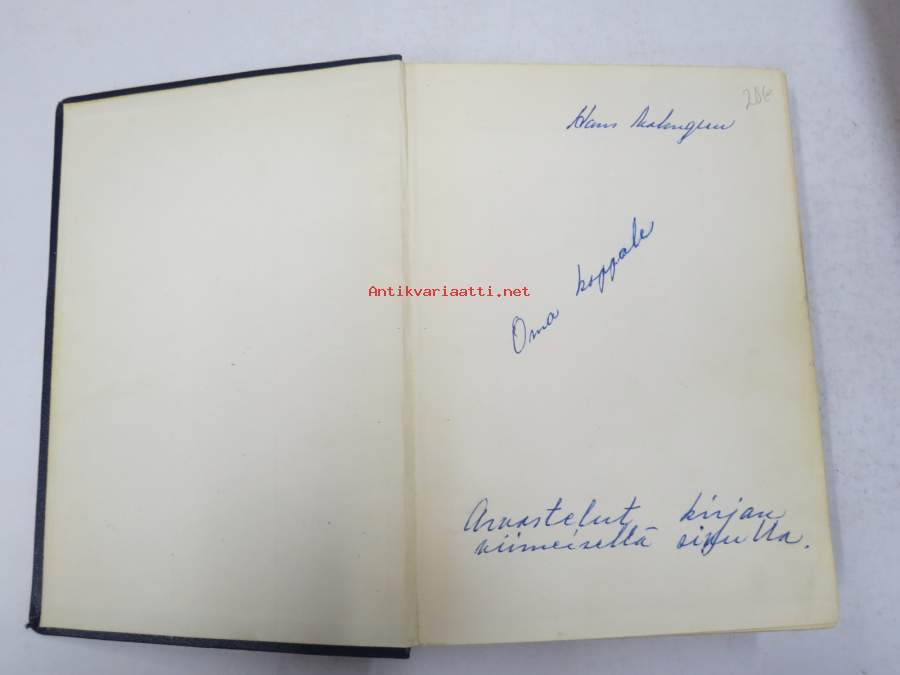 28€
Hans Malmgren
Oma kappale
Antikvariaatti.net
Arvostelut kirjan
viimeisellä sivulla.